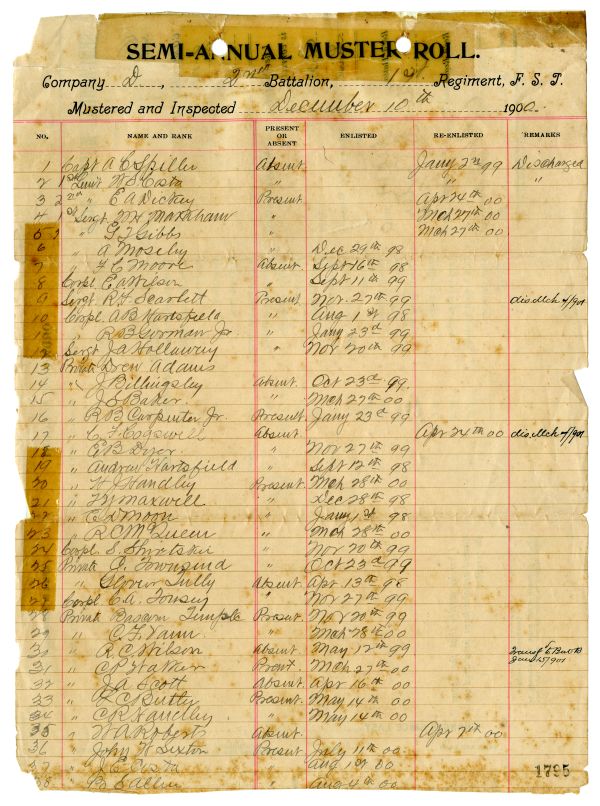 SEMI-ANNUAL MUSTER ROLL.
Company D, 2nd Battalion, 1st Regiment, F. S. T.
Mustered and Inspected December 10th 1900.
NO. NAME AND RANK PRESENT OR ABSENT ENLISTED RE-ENLISTED REMARKS
1 Capt A C Spiller Absent Jany 2nd 99 Discharged
2 1st Lieut W S Costa " " "
3 2nd " E A Dickey Present Apr 24th 00
4 Sergt M H Markham " Mch 27th 00
5 " G T Gibbs " Mch 27th 00
6 " A Moseley " Dec 29th 98
7 " F C Moore Absent Sept 16th 98
8 Corpl E A Wilson " Sept 11th 99
9 Sergt R H Scarlett Present Nov. 27th 99 dis Mch 4/901
10 Corpl A B Hartsfield " Aug 1st 98
" R B Gorman Jr " Jany 23d 99
12 Sergt J A Hollaway " Nov 20th 99
13 Private Drew Adams
14 " J Billingsly Absent Oct 23d 99.
15 " J S Baker " Mch 27th 00
16 " R B Carpenter Jr. Present Jany 23d 99
17 " C F Cogswell Absent. Apr 24th 00 dis Mch 4/901
18 " C B Dyer " Nov 27th 99
19 " Andrew Hartsfield " Sept 12th 98
20 " H J Handley Present Mch 28th 00
21 " Maxwell " Dec 28th 98
22 " C D Moon " Jany 1st 98
23 " R C McQueen " Mch 28th 00
24 Corpl S. " Nov 20th 99
25 Private J. Townsend " Oct 23d 99
26 " Glover Tully Absent Apr 13th 98
27 Corpl C A. Tousey " Nov 27th 99
28 Private Bascom Temple Present Nov 20th 99
29 " C F Vann. " Mch 28th 00
30 " R C Wilson Absent May 12th 99 Transf to Bat B
31 " C P Walker Prent. Mch 27th 00 Jan 15/901
32 " J A Scott Absent Apr 16th 00
33 " C Butler Present May 14th 00
34 " C R Handley " May 14th 00
35 " W A Roberts Absent. Apr 2nd 00
36 " John W Sixton Present July 11th 00
37 " J E Costa " Aug 1st 00
38 " B Allen " Aug 4th 00
1795